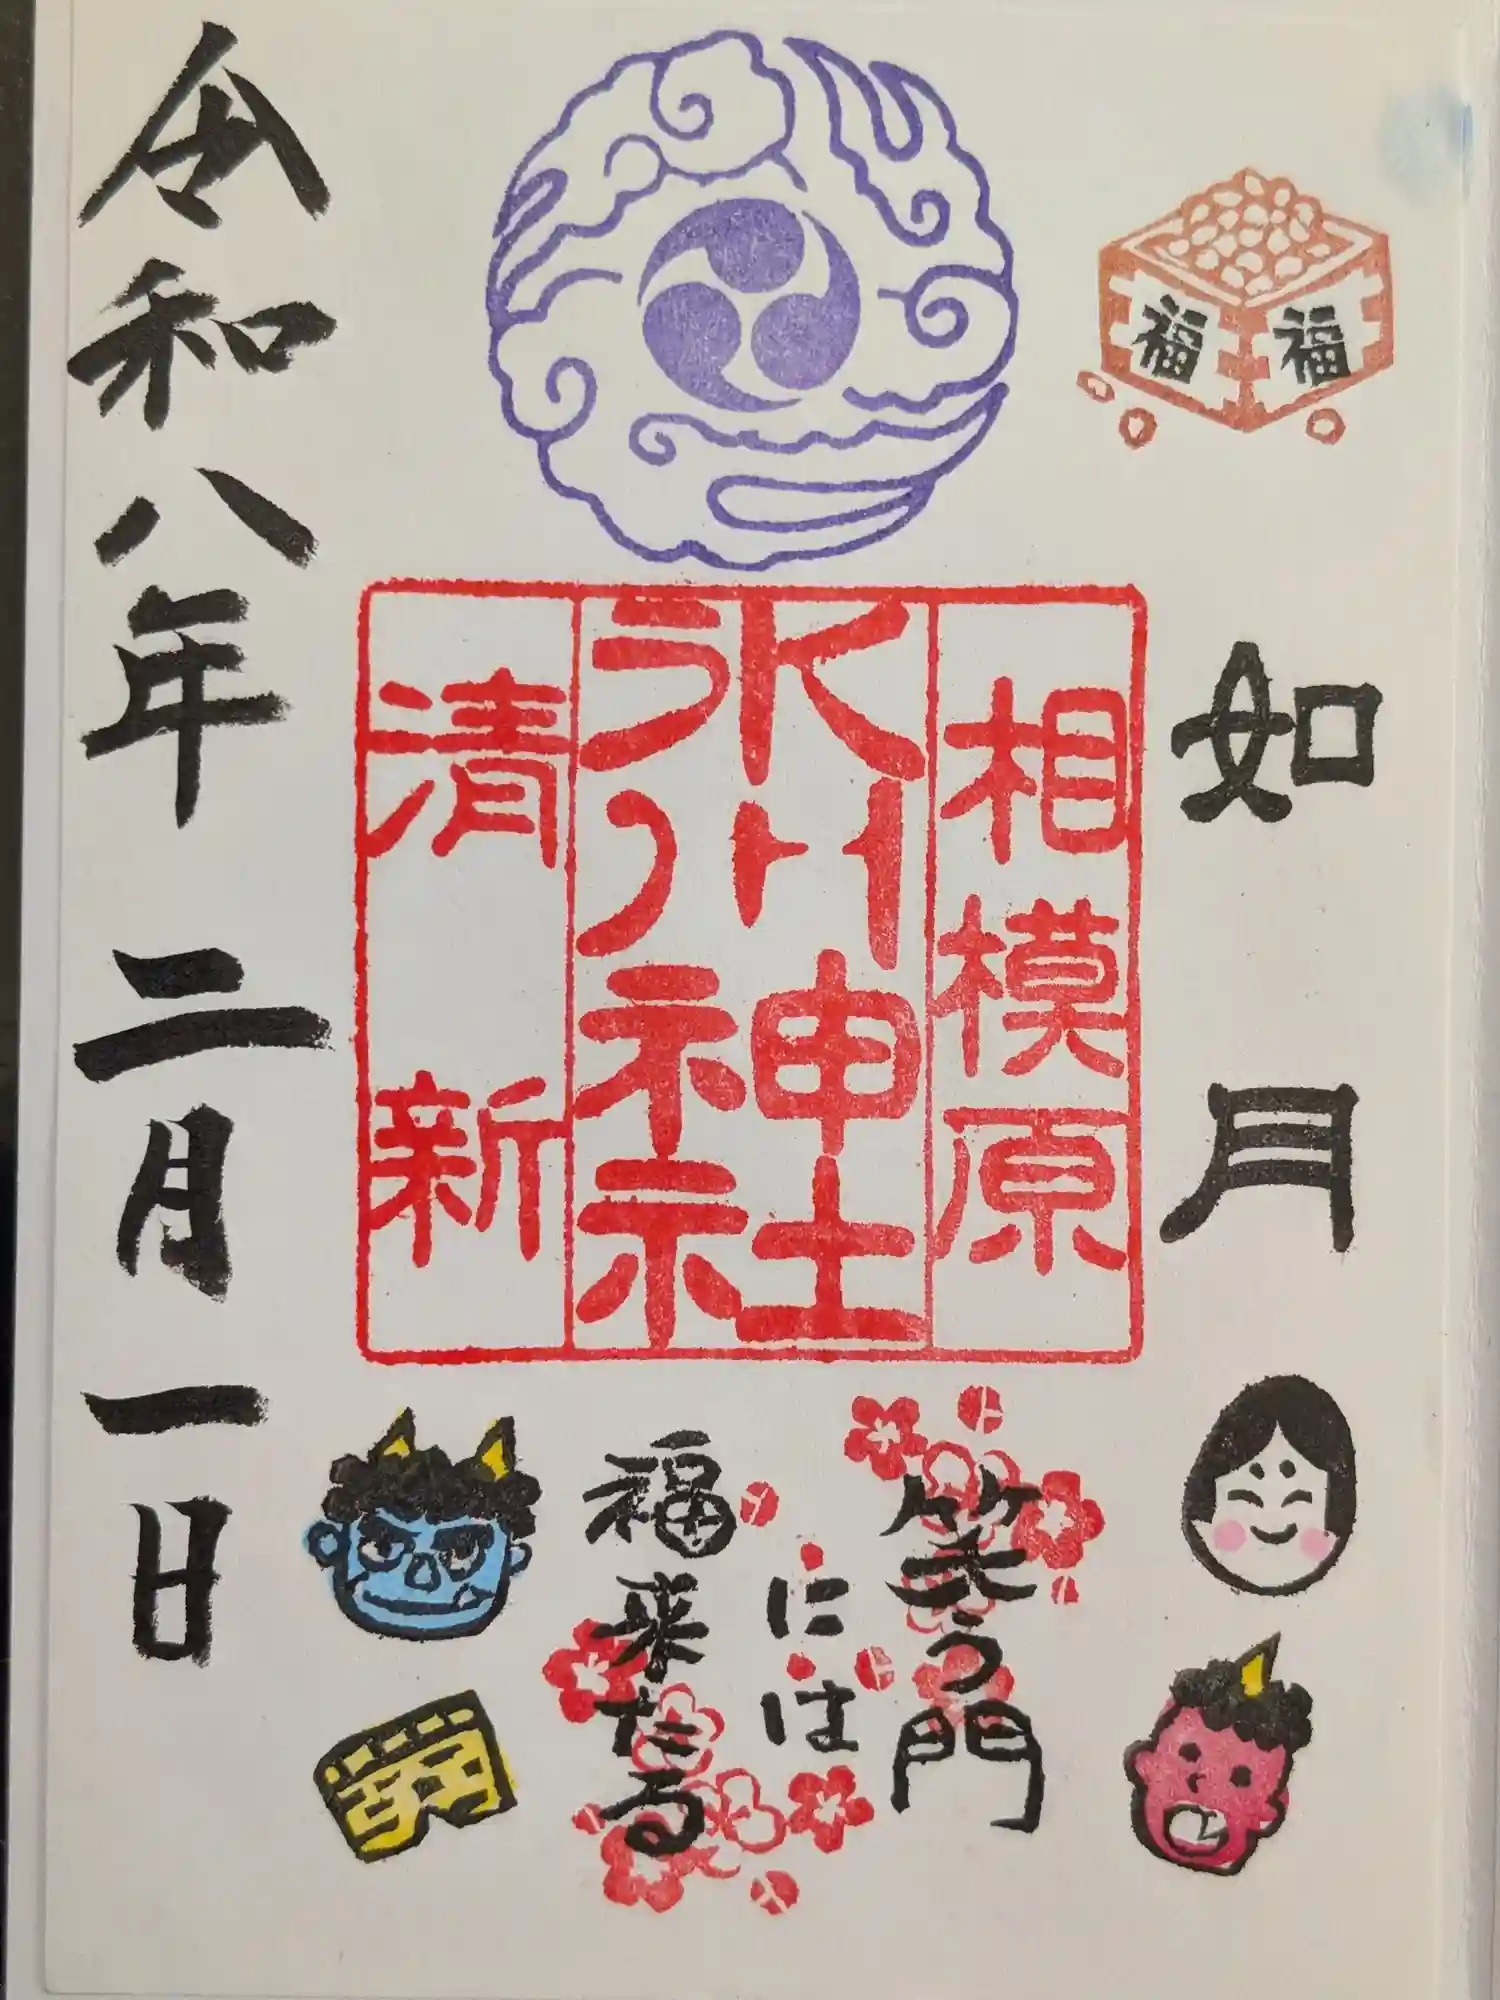 福
福
如月
相模原
氷川神社
清新
笑う門
には
福来たる
令和八年二月一日